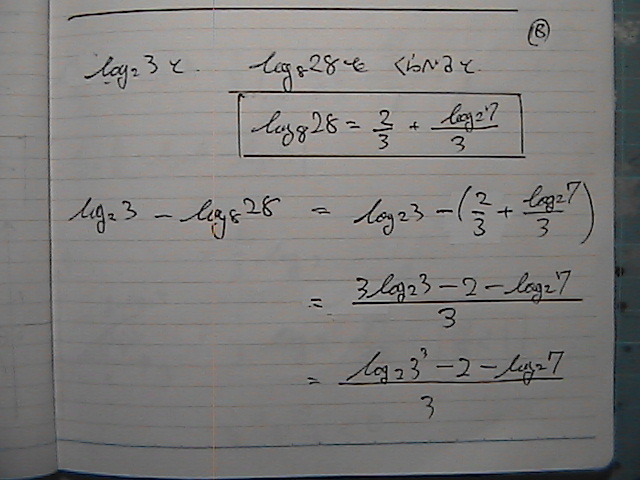 (B)
log₂3と log₈28を くらべると
log₈28 = 2/3 + log₂7/3
log₂3 - log₈28 = log₂3 - (2/3 + log₂7/3)
= (3log₂3 - 2 - log₂7)/3
= (log₂3³ - 2 - log₂7)/3